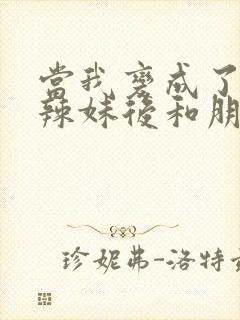 當我變成了
辣妹後和朋
珍妮弗-洛特